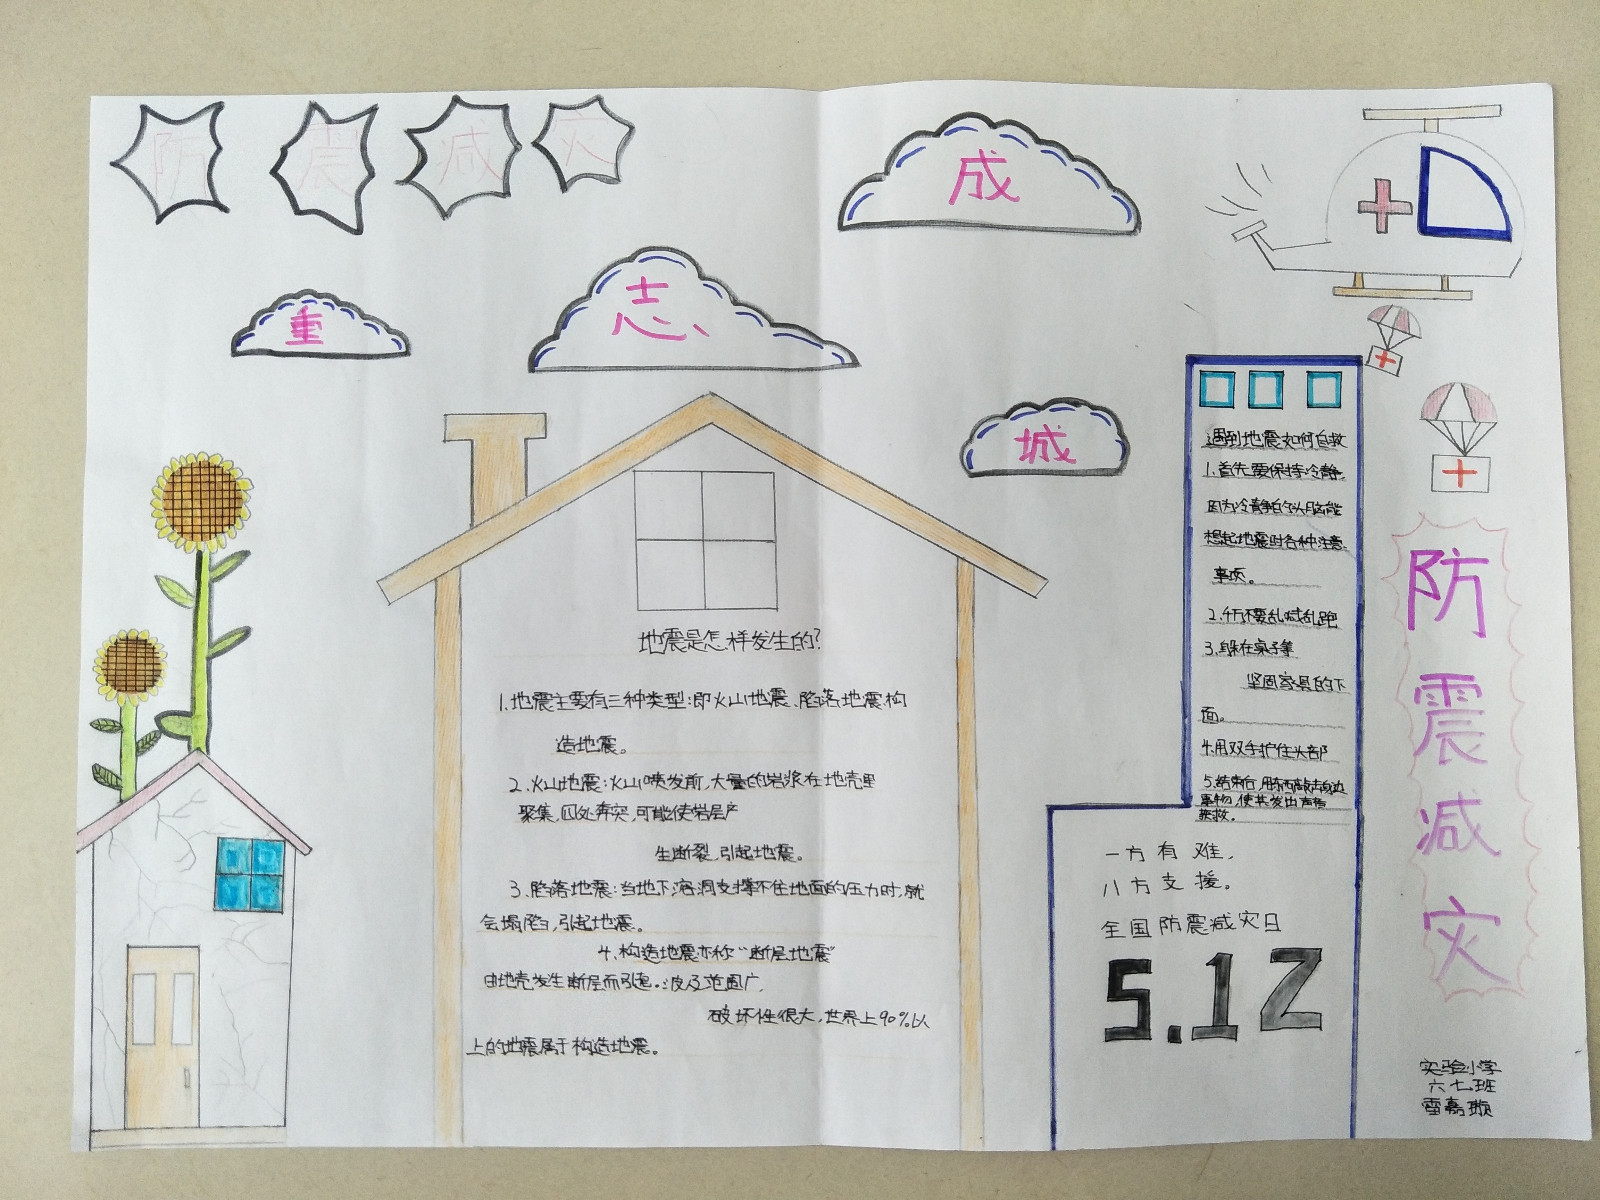 防震减灾
众志成城
重
志
成
城
地震是怎样发生的?
1.地震主要有三种类型:即火山地震、陷落地震、构
造地震。
2.火山地震:火山喷发前,大量的岩浆在地壳里
聚集,四处奔突,可能使岩层产
生断裂,引起地震。
3.陷落地震:当地下溶洞支撑不住地面的压力时,就
会塌陷,引起地震。
4.构造地震亦称“断层地震”
由地壳发生断层而引起。波及范围广,
破坏性很大,世界上90%以
上的地震属于构造地震。
遇到地震如何自救
1.首先要保持冷静,
因为冷静的头脑能
想起地震时各种注意
事项。
2.千万不要乱喊乱跑
3.躲在桌子等
坚固家具的下
面。
4.用双手护住头部
5.结束后,用东西敲击身边
事物,使其发出声音
获救。
一方有难,
八方支援。
全国防震减灾日
5.12
防震减灾
实验小学
六七班
雷嘉璇